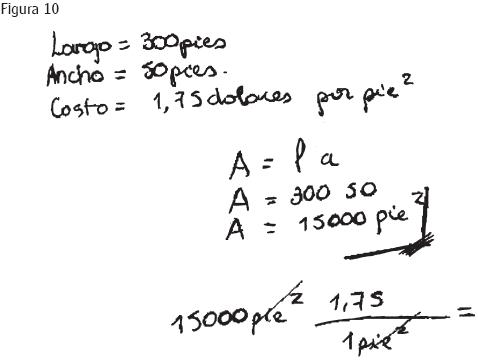 Figura 10
Largo = 300 pies
Ancho = 50 pies.
Costo = 1,75 dolares por pie²
A = l a
A = 300 50
A = 15000 pie²
15000 pie² 1,75 / 1 pie² =